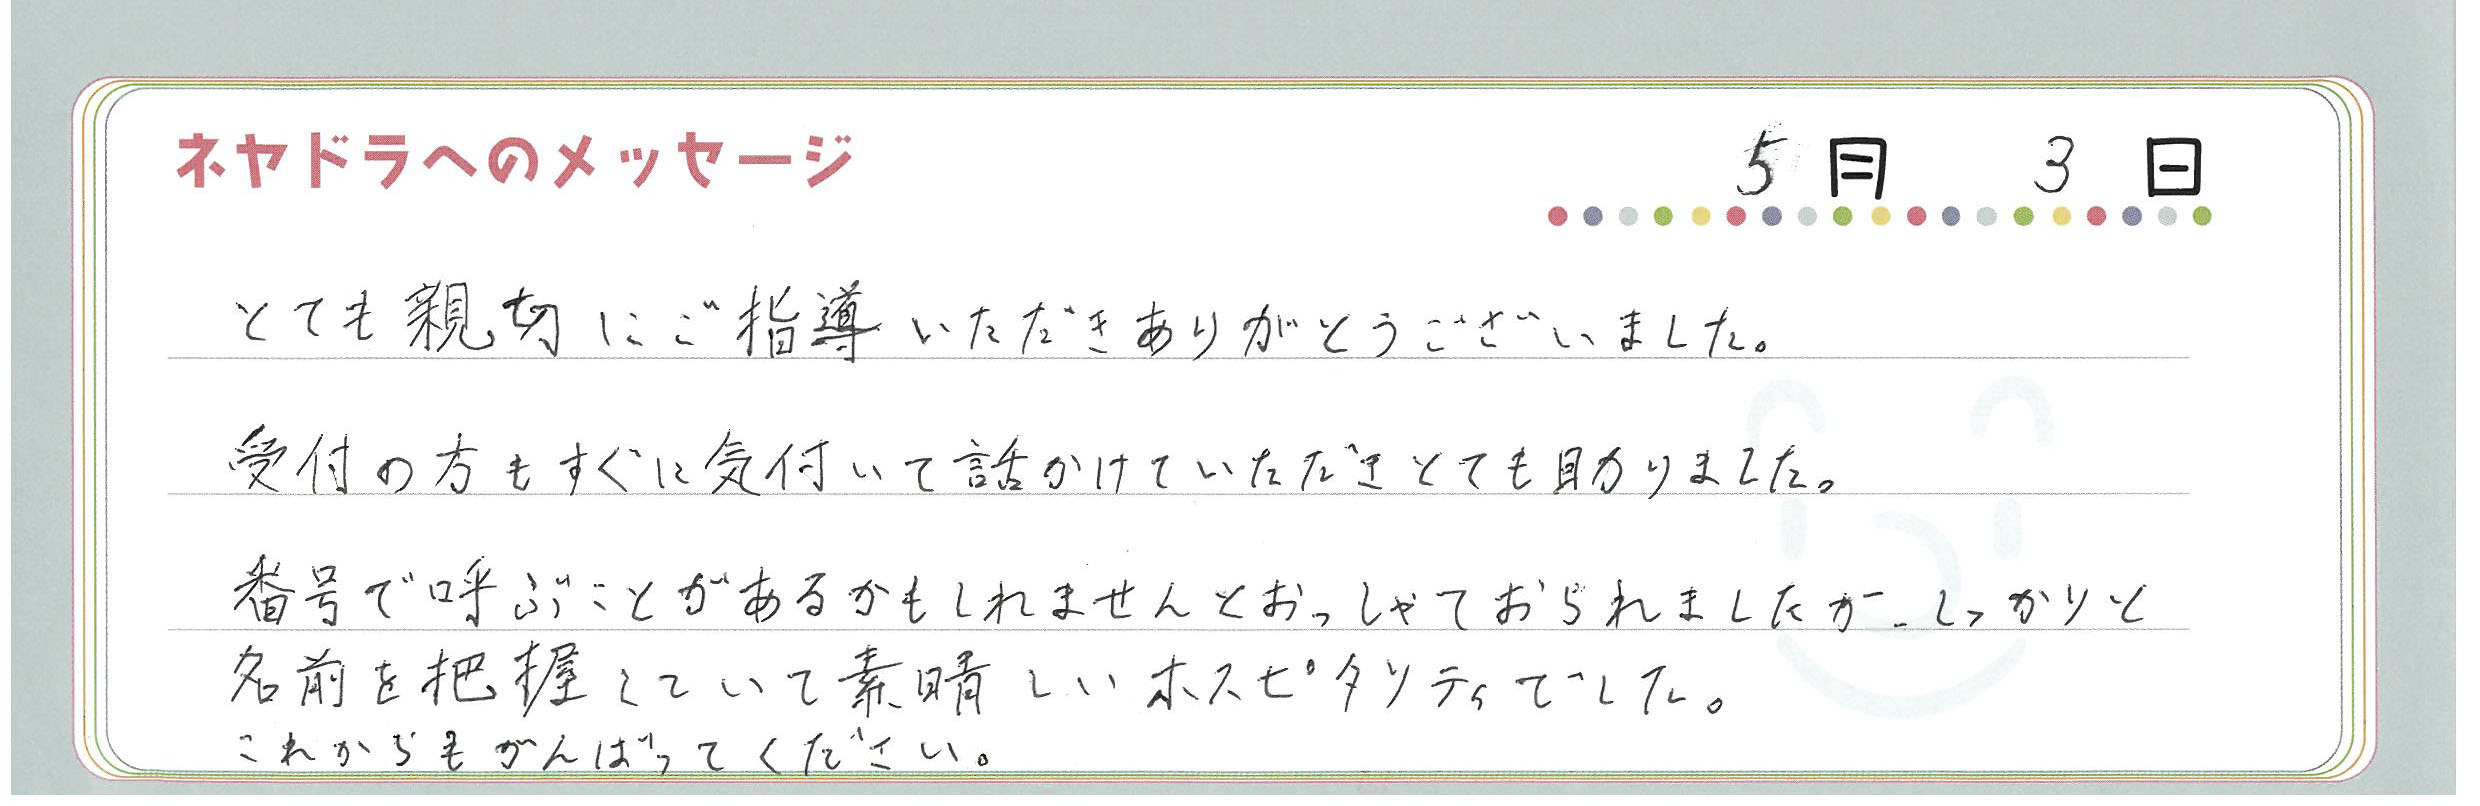 ネヤドラへのメッセージ
5月 3日
とても親切にご指導いただきありがとうございました。
受付の方もすぐに気付いて話かけていただきとても助かりました。
番号で呼ぶことがあるかもしれませんとおっしゃておられましたが、しっかりと
名前を把握していて素晴しいホスピタリティでした。
これからもがんばってください。